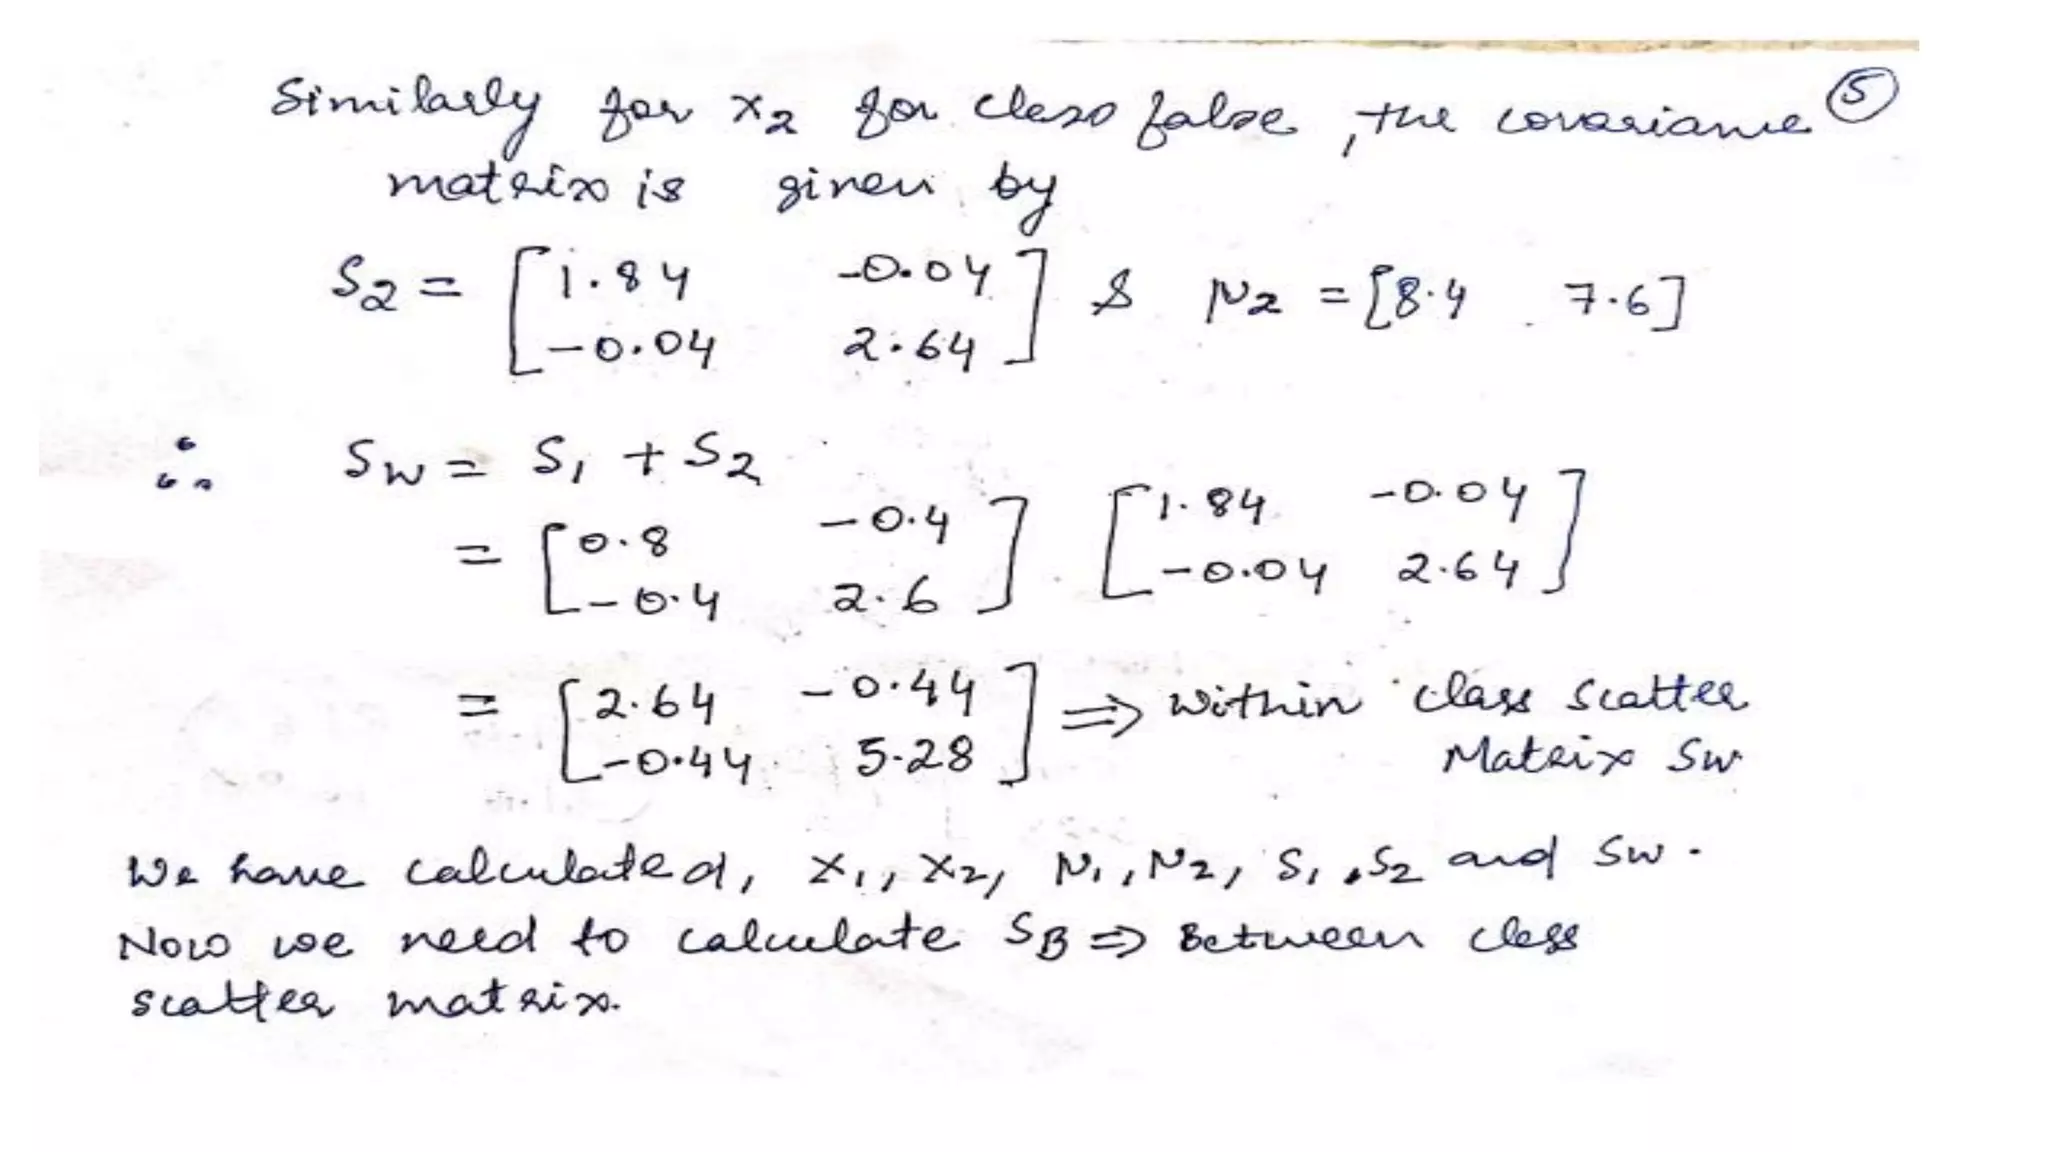 Similarly for x2 for class false, the covariance ⑤
matrix is given by
S2 = [1.84 -0.04 -0.04 2.64] & μ2 = [8.4 7.6]
∴ Sw = S1 + S2
= [0.8 -0.4 -0.4 2.6] [1.84 -0.04 -0.04 2.64]
= [2.64 -0.44 -0.44 5.28] ⇒ within class scatter
Matrix Sw
We have calculated, X1, X2, μ1, μ2, S1, S2 and Sw.
Now we need to calculate SB ⇒ Between class
scatter matrix.